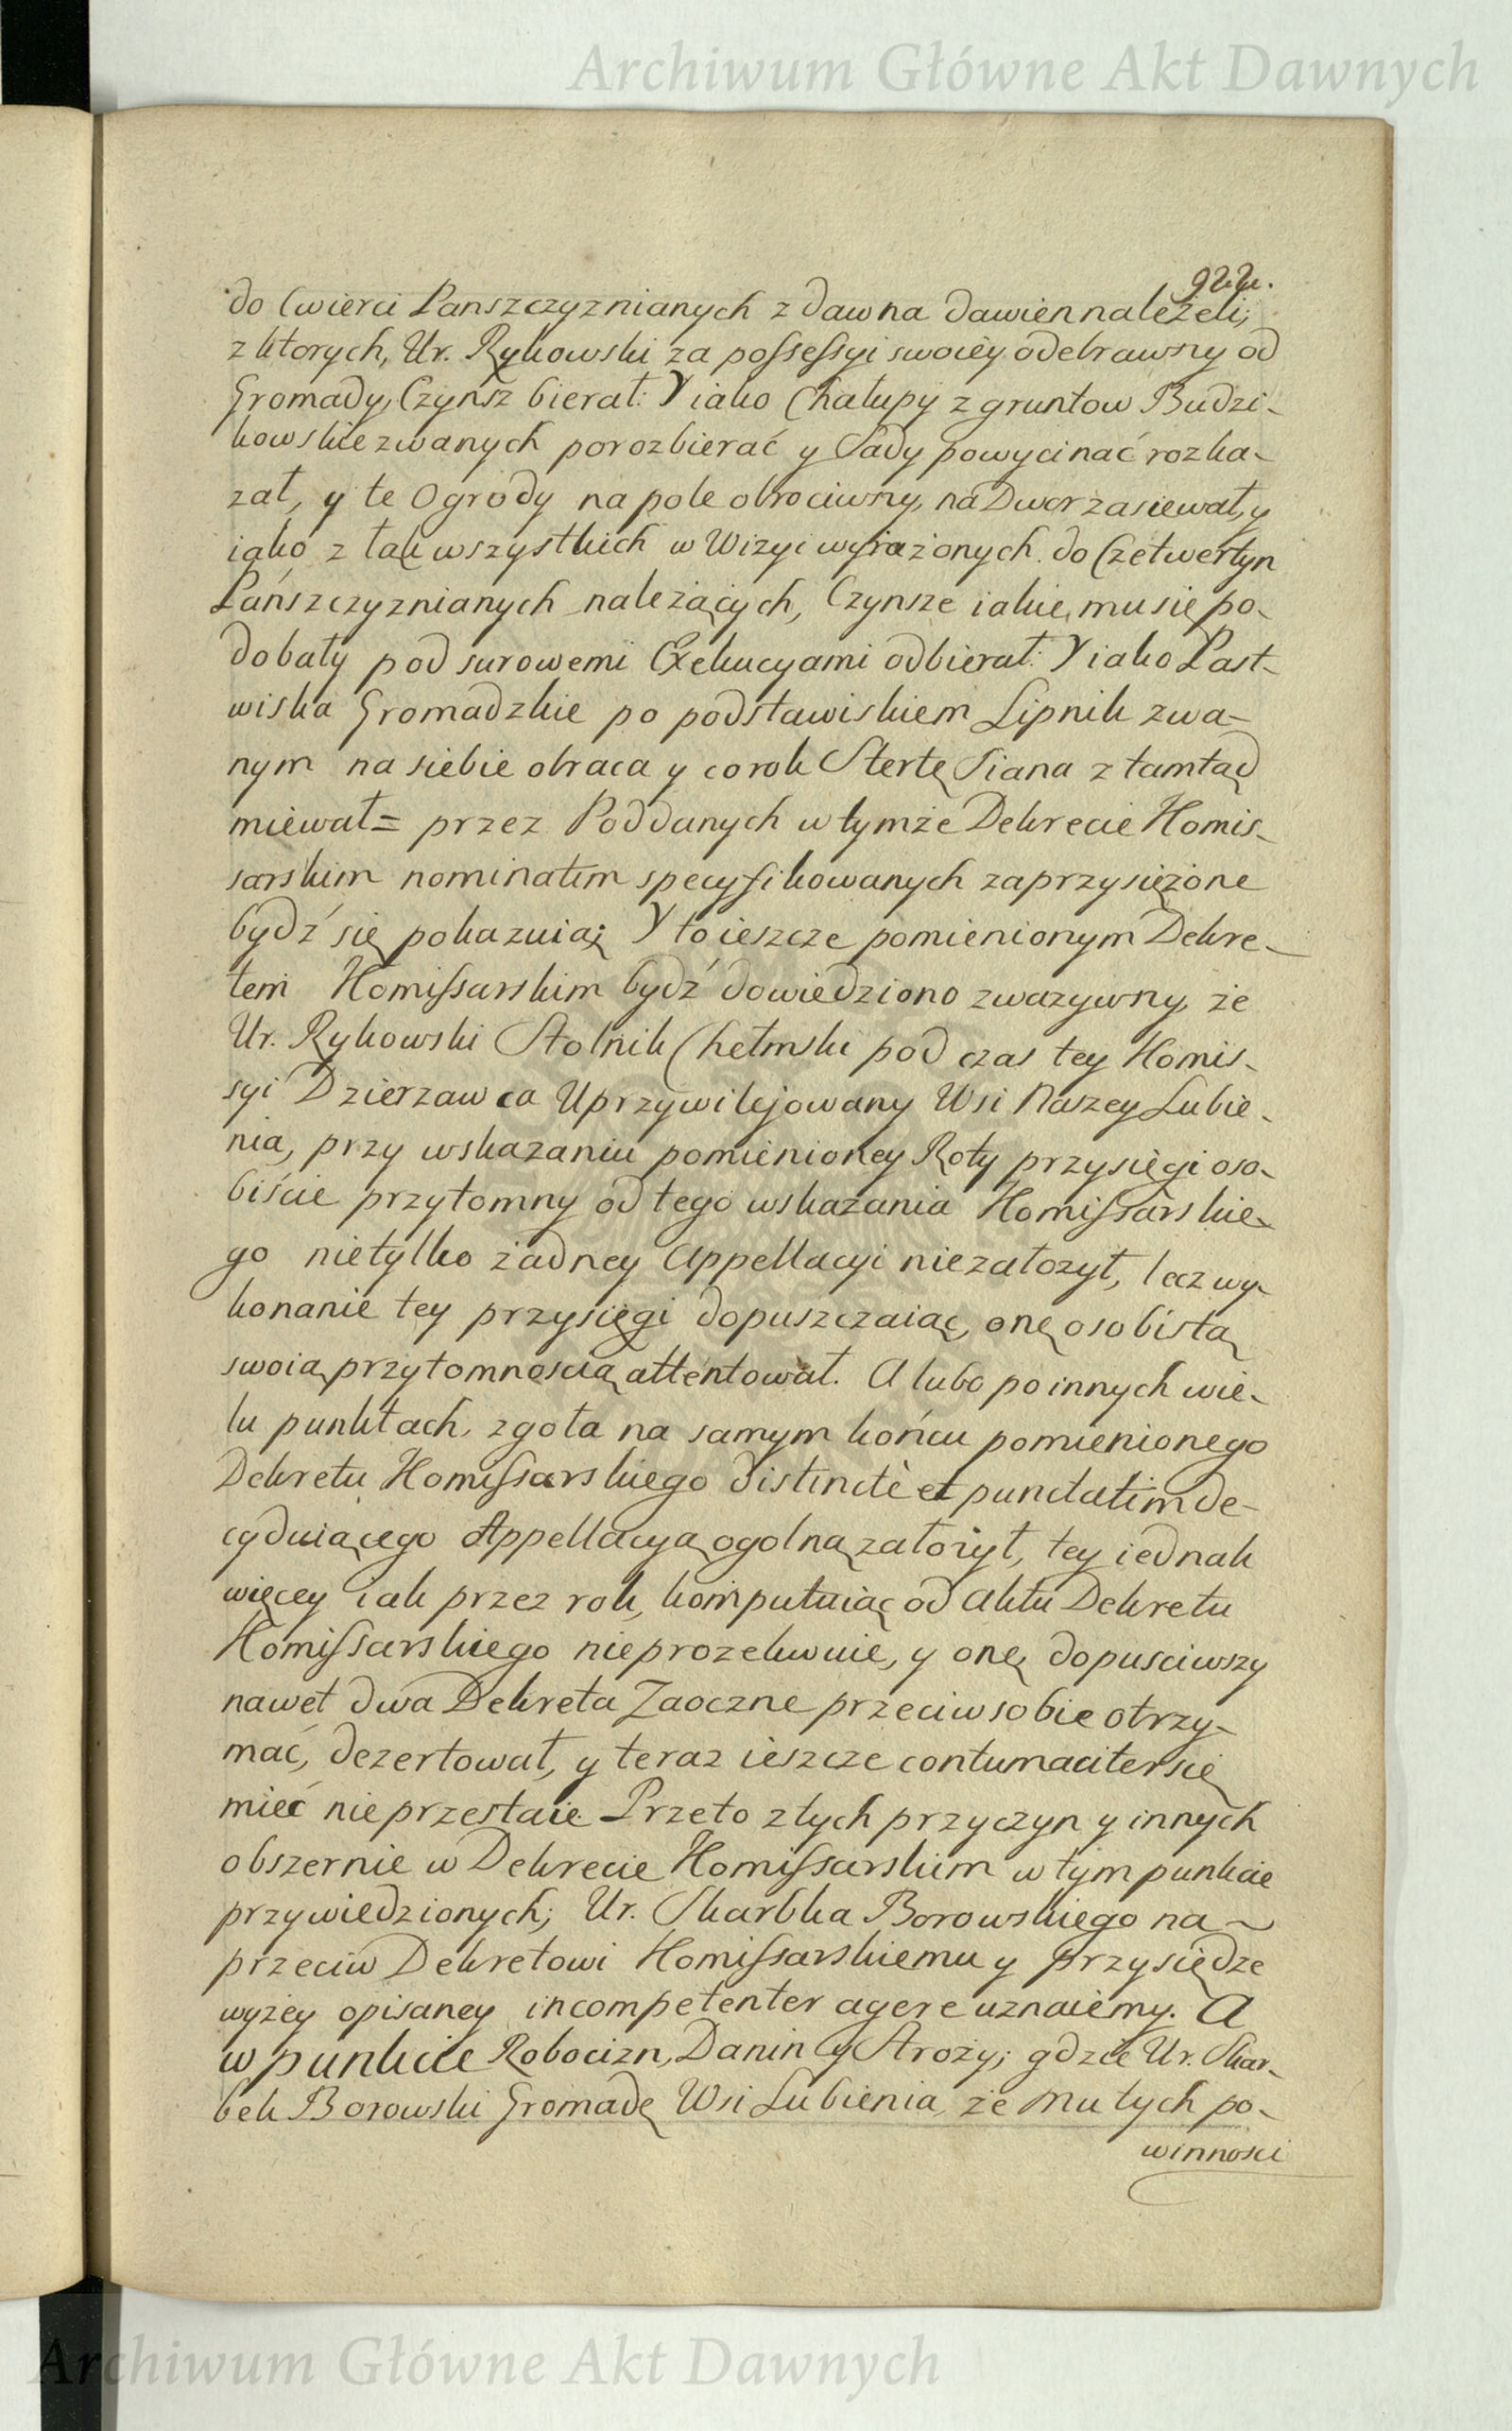 Archiwum Główne Akt Dawnych
922.
do Cwierci Panszczyznianych z dawna dawien należeli;
z ktorych, Ur. Rykowski za possessyi swoiéy odebrawszy od
Gromady, Czynsz bierał: Y iako Chałupy z gruntow Budzi-
kowskie zwanych porozbierać y Sady powycinać rozka-
zał, y te Ogrody na pole obrociwszy, na Dwor zasiewał, y
iako z tak wszystkich w Wizyi wyrażonych do Czetwertyn
Pańszczyznianych należących, Czynsze iakie mu się po-
dobały pod surowemi Exekucyami odbierał: Y iako Past-
wiska Gromadzkie po podstawiskiem Lipnik zwa-
nym na siebie obraca y co rok Stertę Siana z tamtąd
miewał= przez Poddanych w tymże Dekrecie Komis-
sarskim nominatim specyfikowanych zaprzysiężone
bydź się pokazuią; Y to ieszcze pomienionym Dekre-
tem Komissarskim bydź dowiedziono zwazywszy, że
Ur. Rykowski Stolnik Chełmski pod czas tey Komis-
syi Dzierzawca Uprzywilejowany Wsi Naszey Lubie-
nia, przy wskazaniu pomienioney Roty przysięgi oso-
biście przytomny od tego wskazania Komissarskie-
go nietylko żadney Appellacyi niezałozył, lecz wy-
konanie tey przysięgi dopuszczaiąc, onę osobistą
swoią przytomnoscią attentował. A lubo po innych wie-
lu punktach, zgoła na samym końcu pomienionego
Dekretu Komissarskiego distinctè et punctatim de-
cyduiącego Appellacyą ogolną załozył, tey iednak
więcey iak przez rok, komputuiąc od Aktu Dekretu
Komissarskiego nieprozekwuie, y onę dopusciwszy
nawet dwa Dekreta Zaoczne przeciw sobie otrzy-
mać, dezertował, y teraz ieszcze contumaciter się
mieć nieprzestaie. Przeto z tych przyczyn y innych
obszernie w Dekrecie Komissarskim w tym punkcie
przywiedzionych; Ur. Skarbka Borowskiego na-
przeciw Dekretowi Komissarskiemu y przysiędze
wyżey opisaney incompetenter agere uznaiemy. A
w punkcie Robocizn, Danin y Stroży; gdzie Ur. Skar-
bek Borowski Gromadę Wsi Lubienia, że mu tych po-
winnosci
Archiwum Główne Akt Dawnych